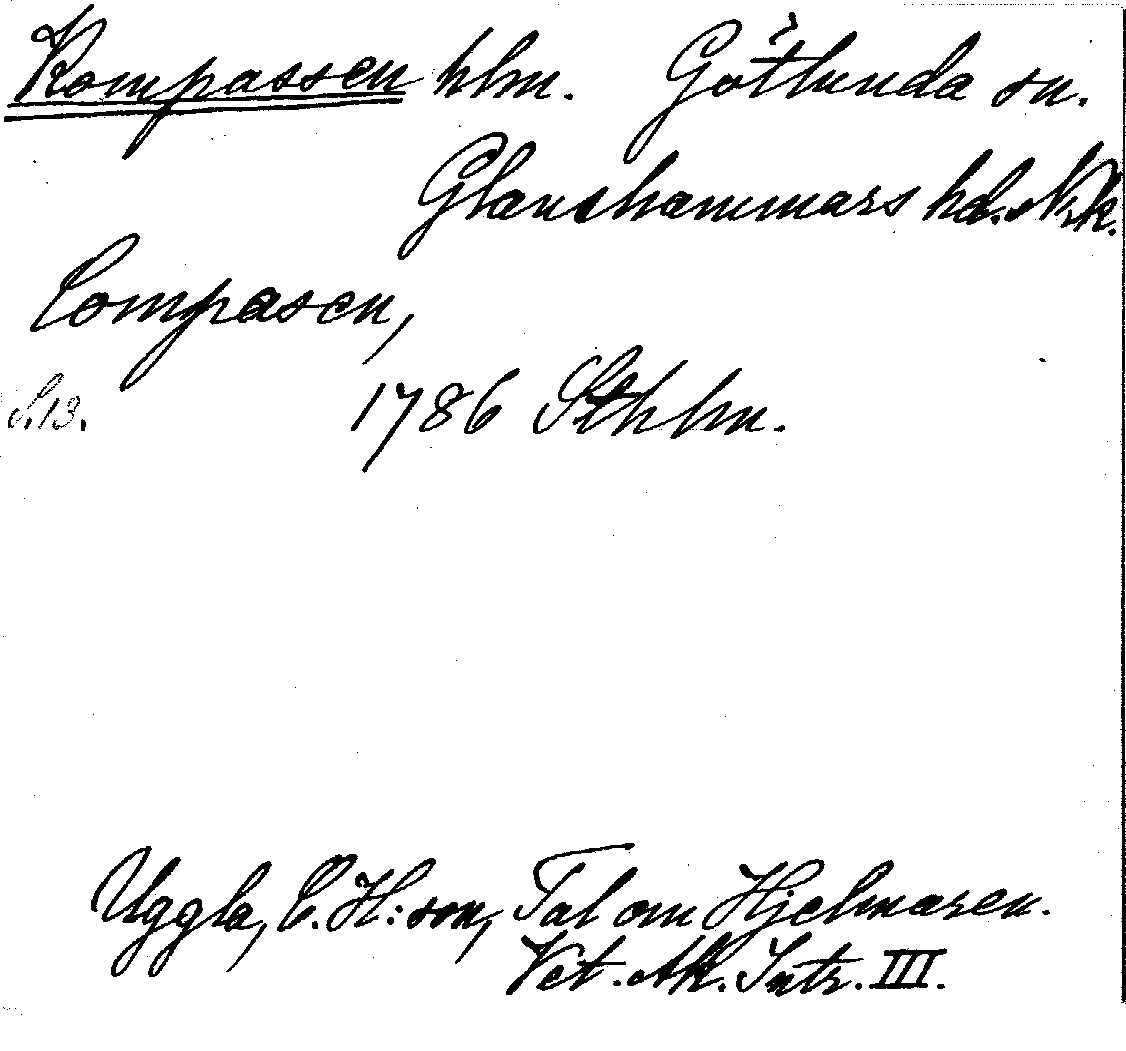 Kompassen hlm. Götlunda sn.
Glanshammars hd. Nrk.
Compasen,
S.13. 1786 Sthlm.
Uggla, C. H:son, Tal om Hjelmaren.
Vet. Ak. Intr. III.